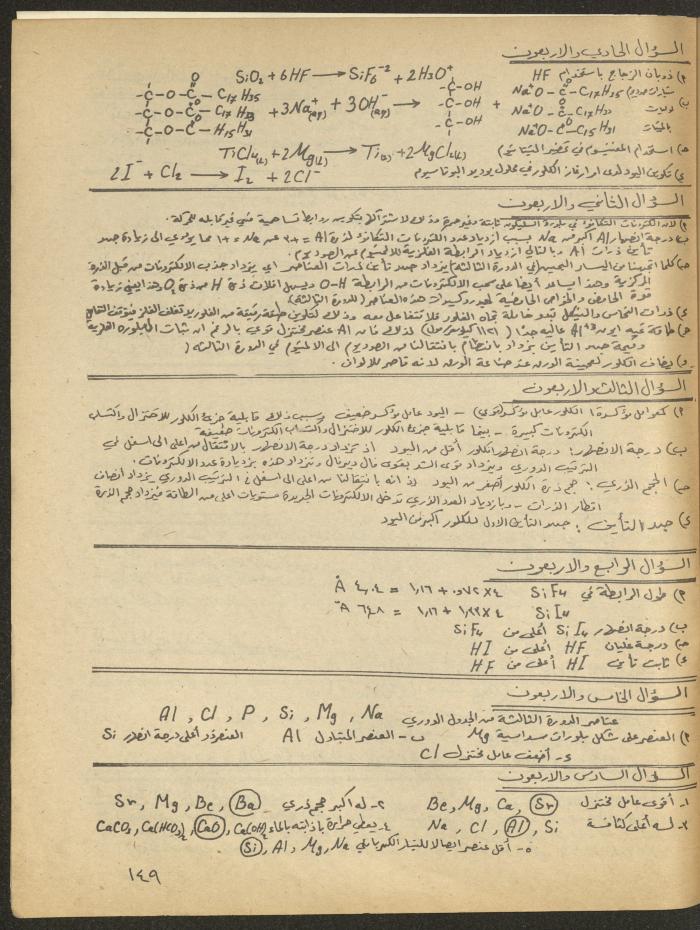 السؤال الحادي والاربعون
أ) ذوبان الزجاج باستخدام HF SiO₂ + 6HF → SiF₆⁻² + 2H₃O⁺
-C-O-C-C₁₇H₃₅ -C-OH Na⁺O-C-C₁₇H₃₅
-C-O-C-C₁₇H₃₃ + 3Na⁺(aq) + 3OH⁻(aq) → -C-OH + Na⁺O-C-C₁₇H₃₃
-C-O-C-H₁₅H₃₁ -C-OH Na⁺O-C-C₁₅H₃₁
ج) استخدام المغنسيوم في تحضير التيتانيوم) TiCl₄(L) + 2Mg(L) → Ti(s) + 2MgCl₂(L)
د) تكوين اليود لدى امرار غاز الكلور في محلول يوديد البوتاسيوم 2I⁻ + Cl₂ → I₂ + 2Cl⁻
السؤال الثاني والاربعون
أ) لان الكترونات التكافؤ في بلورة السليكون ثابتة وغير حرة وذلك لاشتراكها بتكوين روابط تساهمية فهي غير قابلة للحركة.
ب) درجة انصهار Al أكبر من Na بسبب ازدياد عدد الكترونات التكافؤ لذرة Al = ٣+ عن Na = ١+ مما يؤدي الى زيادة جهد
تأين ذرات Al وبالتالي ازدياد الرابطة الفلزية للالمنيوم عن الصوديوم.
ج) كلما اتجهنا من اليسار لليمين (في الدورة الثالثة) يزداد جهد تأين لذرات العناصر اي يزداد جذب الالكترونات من قبل الذرة
المركزية وهذا يساعد أيضا على سحب الالكترونات من الرابطة O-H ويسهل افلات ذرة H من ذرة O وهذا يعني زيادة
قوة الحامض والخواص الحامضية لهيدروكسيدات هذه العناصر (الدورة الثالثة)
د) ذرات النحاس والنيكل تبدو خاملة تجاه الفلور فلا تتفاعل معه وذلك لتكوين طبقة رقيقة من الفلوريد تغلف الفلز فيتوقف التفاعل
هـ) طاقة تميه ايون Al⁺³ عالية جدا ( ١١٢١ كيلوسعر/مول) لذلك فان Al عنصر مختزل قوي بالرغم ان ثبات البلوره الفلزية
وقيمة جهد التأين يزداد بانتظام بانتقالنا من الصوديوم الى الالمنيوم في الدورة الثالثة (
و) يضاف الكلور لعجينة الورق عند صناعة الورق لانه قاصر للالوان.
السؤال الثالث والاربعون
أ) كعوامل مؤكسدة: الكلور عامل مؤكسد (قوي) - اليود عامل مؤكسد ضعيف وسبب ذلك قابلية جزئ الكلور للاختزال واكتساب
الكترونات كبيرة - بينما قابلية جزئ الكلور للاختزال واكتساب الكترونات ضعيفة
ب) درجة الانصهار: درجة انصهار الكلور أقل من اليود اذ تزداد درجة الانصهار بالانتقال من اعلى الى اسفل في
الترتيب الدوري ويزداد قوى الشد بقوى فان ديرفال وتزداد هذه بزيادة عدد الالكترونات.
ج) الحجم الذري: حجم ذرة الكلور أصغر من اليود لانه بانتقالنا من اعلى الى اسفل في الترتيب الدوري يزداد أنصاف
اقطار الذرات - وبازدياد العدد الذري تدخل الالكترونات الجديدة مستويات اعلى من الطاقة فيزداد حجم الذرة
د) جهد التأين: جهد التأين الاول للكلور أكبر من اليود
السؤال الرابع والاربعون
أ) طول الرابطة في SiF₄ ٤ × ٠,٧٢ + ١,١٦ = ٤,٠٤ Å
SiI₄ ٤ × ١,٣٣ + ١,١٦ = ٦,٤٨ Å
ب) درجة انصهار SiI₄ أعلى من SiF₄
ج) درجة غليان HF أعلى من HI
د) ثابت تأين HI أعلى من HF
السؤال الخامس والاربعون
عناصر الدورة الثالثة من الجدول الدوري Al, Cl, P, Si, Mg, Na
أ) العنصر على شكل بلورات سداسية Mg ب- العنصر المتبادل Al العنصر ذو أعلى درجة انصهار Si
د- أضعف عامل مختزل Cl
السؤال السادس والاربعون
١- أقوى عامل مختزل Be, Mg, Ca, Sr ٢- له أكبر حجم ذري Sr, Mg, Be, Ba
٣- له أعلى كثافة Na, Cl, Al, Si ٤- يعطي حرارة باذابته بالماء CaCO₃, Ca(HCO₃)₂, CaO, Ca(OH)₂
٥- أقل عنصر ايصالا للتيار الكهربائي Si, Al, Mg, Na
١٤٩